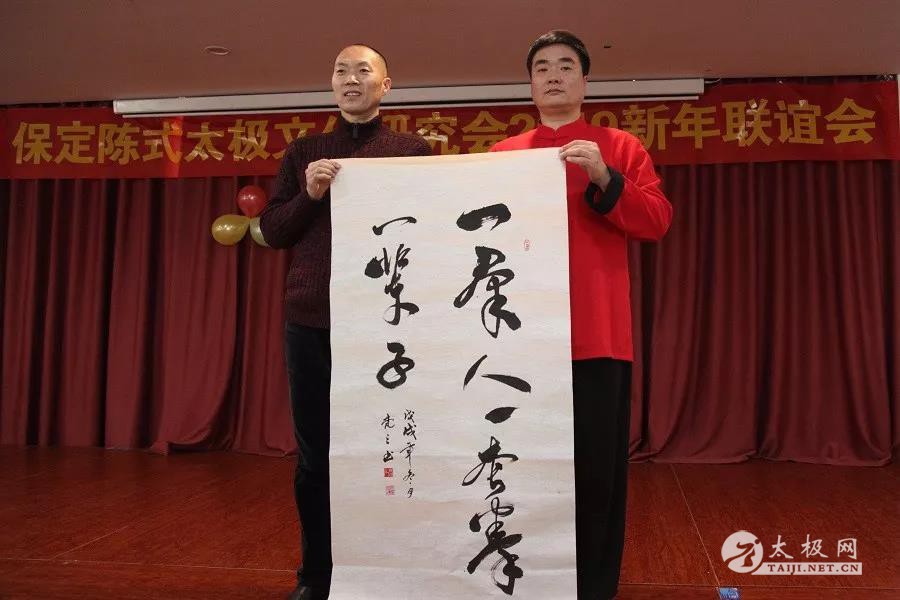 保定陈式太极文化研究会2019新年联谊会
一羣人一套拳
一辈子
戊戌年冬月
太极网
TAIJI.NET.CN